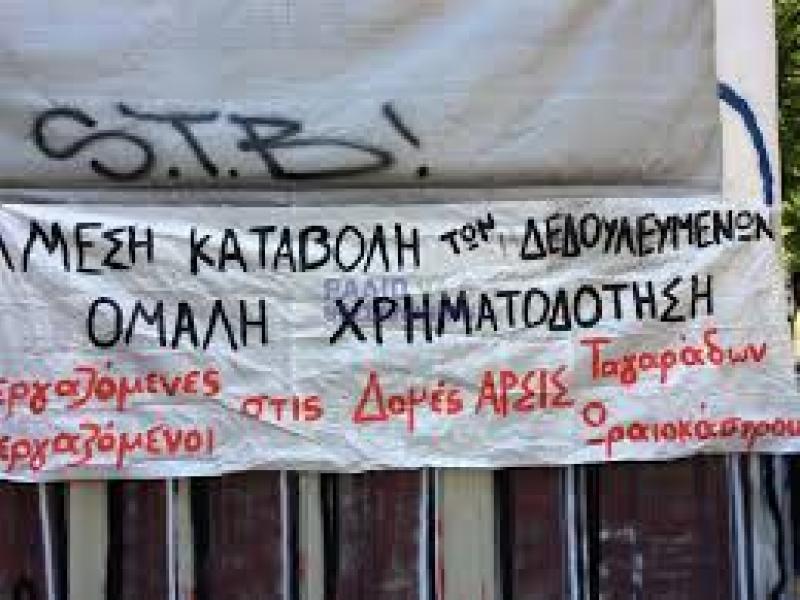 S.T.B!
ΑΜΕΣΗ ΚΑΤΑΒΟΛΗ ΤΩΝ ΔΕΔΟΥΛΕΥΜΕΝΩΝ
ΟΜΑΛΗ ΧΡΗΜΑΤΟΔΟΤΗΣΗ
εργαζόμενες
εργαζόμενοι
στις Δομές ΑΡΣΙΣ
Ταγαράδων
Ωραιοκάστρου
ΡΑΔΙΟ